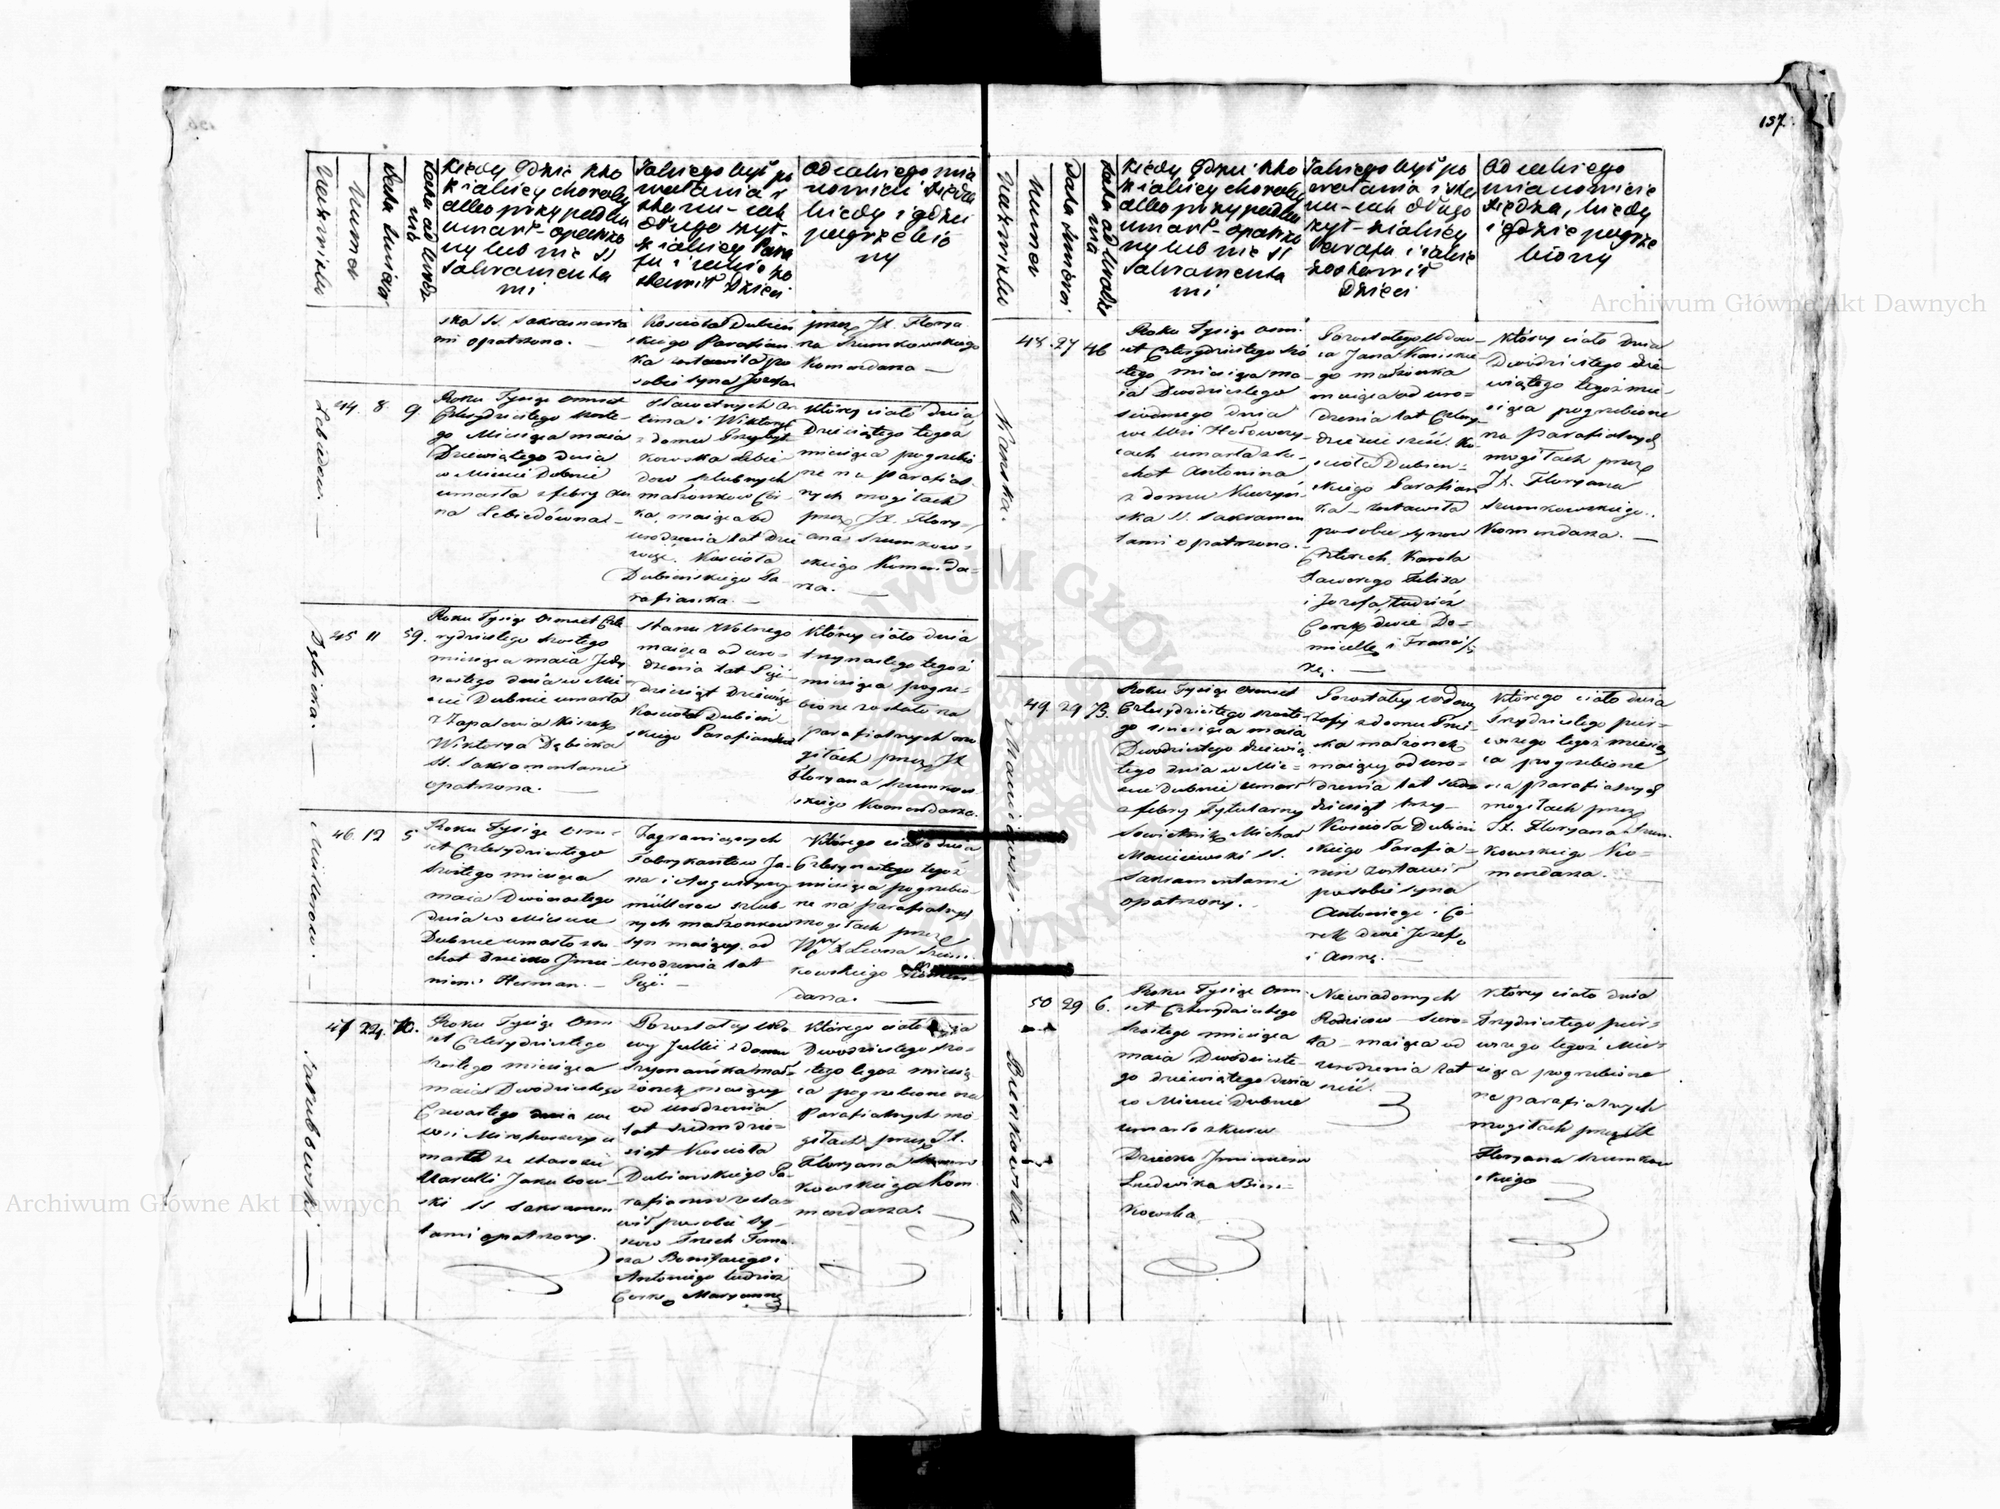 137.
Nazwisko
Numer
Data śmierci
Data od urodze
nia
Kiedy Gdzie kto
z iakiey choroby
albo przypadku
umarł - opatrzo
ny lub nie SS
Sakramenta
mi
Jakiego był po
wołania i
sta nu - jak
długo żył -
z iakiey Para
fii i jakie zo
stawił Dzieci
Od jakiego mia
nowicie Xiędza
kiedy i gdzie
pogrzebio
ny
ska SS. Sakramenta
mi opatrzona. —
Kościoła Dubień
skiego Parafian
ka zostawiła po
sobie syna Józefa
przez JX. Florya
na Szumkowskiego
Komendarza —
Lebiedow. —
44. 8. 9.
Roku Tysiąc Osmset
Czterydziestego szoste-
go Miesiąca maia
Dziewiątego dnia
w Mieście Dubnie
umarła z febry
na Lebiedówna —
Sławetnych An
tona i Wiktoryi
z domu
kowska Lebie
dow szlubnych
małżonkow Cór
ka, maiąca od
urodzenia lat Dzie
więć. Kościoła
Dubienskiego Pa-
rafianka. —
Którey ciało dnia
Dziesiątego tegoż
miesiąca pogrzebio
ne na parafial-
nych mogiłach
przez JX. Flory-
ana Szumkow-
skiego Komenda-
rza. —
Dębicka. —
45 11 59.
Roku Tysiąc Osmset Czte
rydziestego szostego
miesiąca maia Jede
nastego dnia w Mie-
ście Dubnie umarła
z Zapalenia Kiszek
Wiktorya Dębicka
SS. Sakramentami
opatrzona. —
Stanu Wolnego
maiąca od uro-
dzenia lat Pięć
dziesiąt Dziewięć
Kościoła Dubień
skiego Parafianka
Którey ciało dnia
trzynastego tegoż
miesiąca pogrze-
bione zostało na
parafialnych mo
giłach przez JX
Floryana Szumkow
skiego Komendarza.
Millerow. —
46. 12 5
Roku Tysiąc Osm-
set Czterydziestego
szostego miesiąca
maia Dwónastego
dnia w Mieście
Dubnie umarło z su
chot Dziecko Imie-
niem Herman. —
Zagranicznych
Fabrykantow Ja-
na i Augustyny
Müllerow szlub-
nych małżonkow
syn maiący od
urodzenia lat
Pięć. —
Którego ciało dnia
Czternastego tegoż
miesiąca pogrzebio
ne na parafialnych
mogiłach przez
X Leona Szum-
kowskiego Komen-
darza. —
Jakubowski —
47 24. 70.
Roku Tysiąc Osm
set Czterydziestego
szostego miesiąca
maia Dwódziestego
Czwartego dnia we
wsi u
marł ze starości
Marcelli Jakubow-
ski SS Sakramen
tami opatrzony.
Pozostałey wdo
wy Julii z domu
Szymańska mał-
żonek maiący
od urodzenia
lat siedmdzie-
siąt Kościoła
Dubienskiego Pa-
rafianin zosta-
wił po sobie sy-
now Trzech Toma
sza Bonifacego i
Antoniego tudzież
Corkę Maryannę
Którego ciało dnia
Dwódziestego szo-
stego tegoż miesią
ca pogrzebione na
Parafialnych mo
giłach przez JX.
Floryana Szum
kowskiego Kom
mendarza.
Nazwisko
Numer
Data śmierci
Data od urodze
nia
Kiedy Gdzie kto
z iakiey choroby
albo przypadku
umarł - opatrzo
ny lub nie SS
Sakramenta
mi
Jakiego był po
wołania i sta
nu - jak długo
żył - z iakiey
Parafii i jakie
zostawił
Dzieci
Od jakiego
mianowicie
Xiędza, kiedy
i gdzie pogrze
biony
Karska. —
48. 27 46
Roku Tysiąc Osm-
set Czterydziestego szó
stego miesiąca ma-
ia Dwódziestego
siódmego dnia
we Wsi
cach umarła z su-
chot Antonina
z domu
ska SS. Sakramen
tami opatrzona. —
Pozostałego wdow-
ca Jana
go małżonka
maiąca od uro-
dzenia lat Cztery
dzieście sześć. Ko-
scioła Dubien-
skiego Parafian
ka - zostawiła
po sobie synow
Czterech, Karola
Xawerego Felixa
i Jozefa, tudzież
Corek dwie Do-
micellę i Francisz
kę. —
Którey ciało dnia
Dwódziestego dzie-
wiątego tegoż mie-
siąca pogrzebione
na parafialnych
mogiłach przez
JX. Floryana
Szumkowskiego
Komendarza. —
Maniewski —
49. 29. 73.
Roku Tysiąc Osmset
Czterydziestego szoste-
go miesiąca maia
Dwódziestego dziewią
tego dnia w Mie-
ście Dubnie umarł
z febry Tytularny
Sowietnik Michał
Maniewski SS.
Sakramentami
opatrzony. —
Pozostałey wdowy
Zofy z domu
ska małżonek
maiący od uro-
dzenia lat siedm
dziesiąt trzy -
Kościoła Dubień
skiego Parafia-
nin zostawił
po sobie syna
Antoniego i Có-
rek dwie Jozefę
i Annę. —
Którego ciało dnia
Trzydziestego pier-
wszego tegoż miesią
ca pogrzebione
na parafialnych
mogiłach przez
JX. Floryana Szum-
kowskiego Ko-
mendarza. —
Bieńkowska. —
50 29 6.
Roku Tysiąc Osm
set Czterydziestego
Szostego miesiąca
maia Dwódzieste-
go dziewiątego dnia
w Mieście Dubnie
umarło z kuru
Dziecko Imieniem
Ludwika Bień-
kowska
Niewiadomych
Rodzicow - siero-
ta - maiąca od
urodzenia lat
sześć.
Którey ciało dnia
Trzydziestego pier-
wszego tegoż Mie-
siąca pogrzebione
na parafialnych
mogiłach przez JX
Floryana Szumkow
skiego
Archiwum Główne Akt Dawnych
Archiwum Główne Akt Dawnych